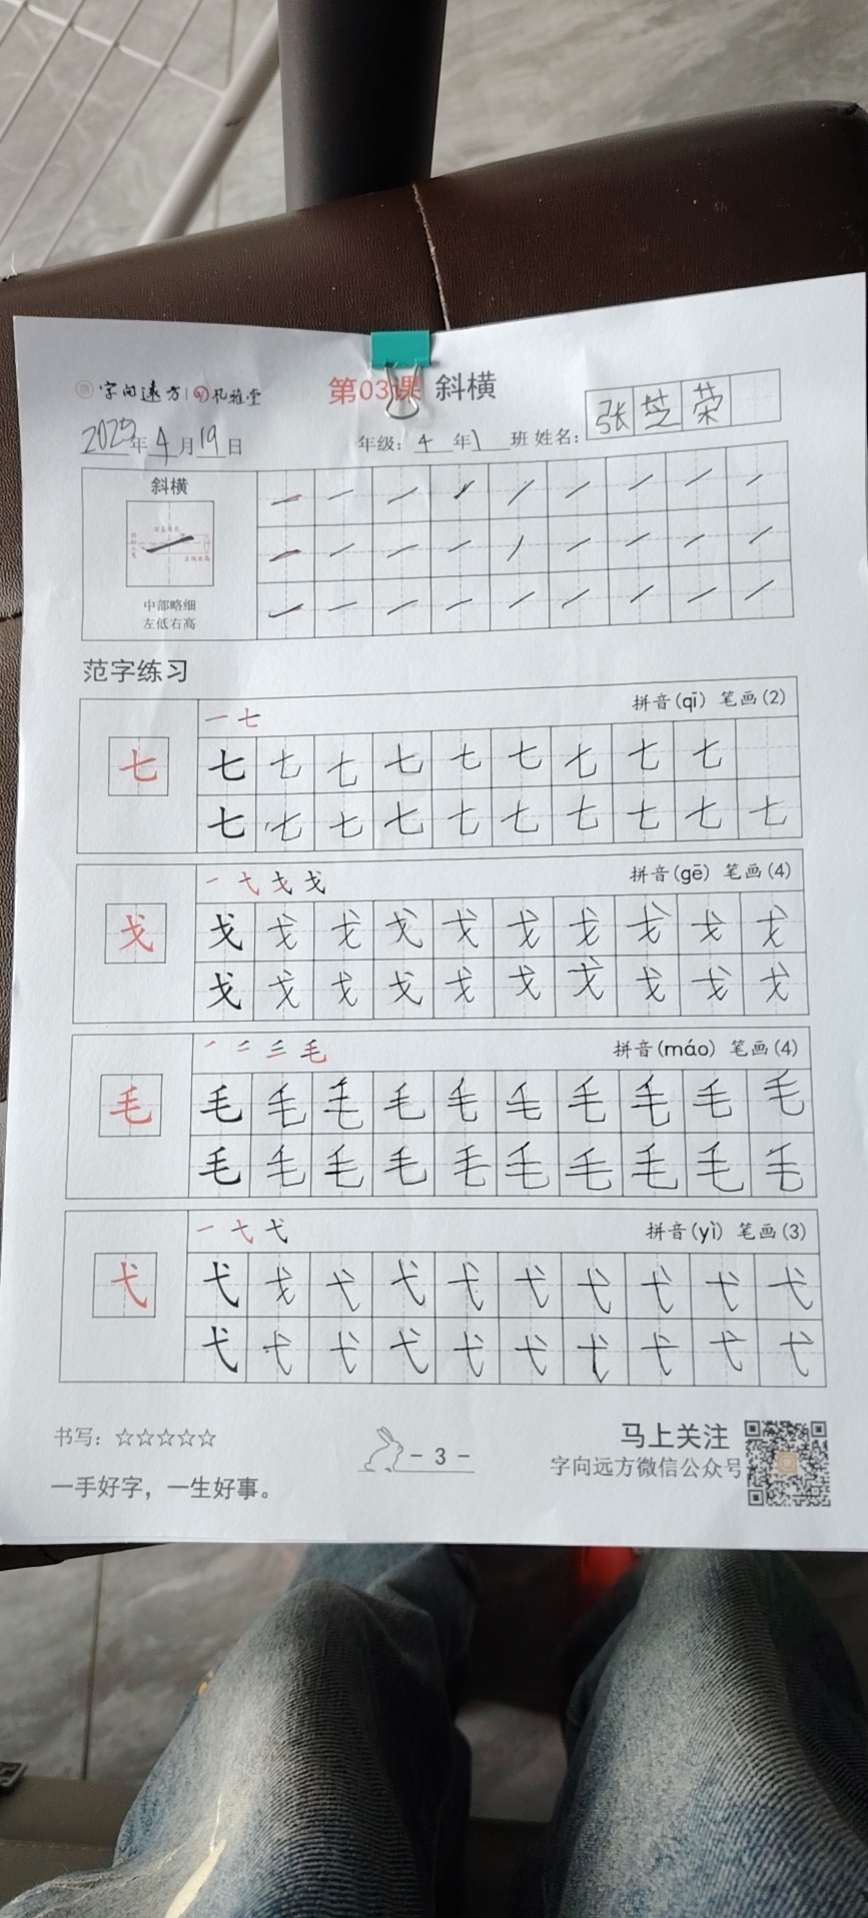 字向远方 | 孔雅堂
第03课 斜横
2025年4月19日 年级：4年1班 姓名：张芝荣
斜横
中部略细
左低右高
范字练习
一 七 拼音(qī) 笔画(2)
七 七 七 七 七 七 七 七 七 七
七 七 七 七 七 七 七 七 七 七
一 弋 戈 戈 拼音(gē) 笔画(4)
戈 戈 戈 戈 戈 戈 戈 戈 戈 戈 戈
戈 戈 戈 戈 戈 戈 戈 戈 戈 戈
毛 拼音(máo) 笔画(4)
毛 毛 毛 毛 毛 毛 毛 毛 毛 毛 毛
毛 毛 毛 毛 毛 毛 毛 毛 毛 毛
一 弋 弋 拼音(yì) 笔画(3)
弋 弋 戈 弋 弋 弋 弋 弋 弋 弋 弋
弋 弋 弋 弋 弋 弋 弋 弋 弋 弋
书写：☆☆☆☆☆
一手好字，一生好事。
- 3 -
马上关注
字向远方微信公众号